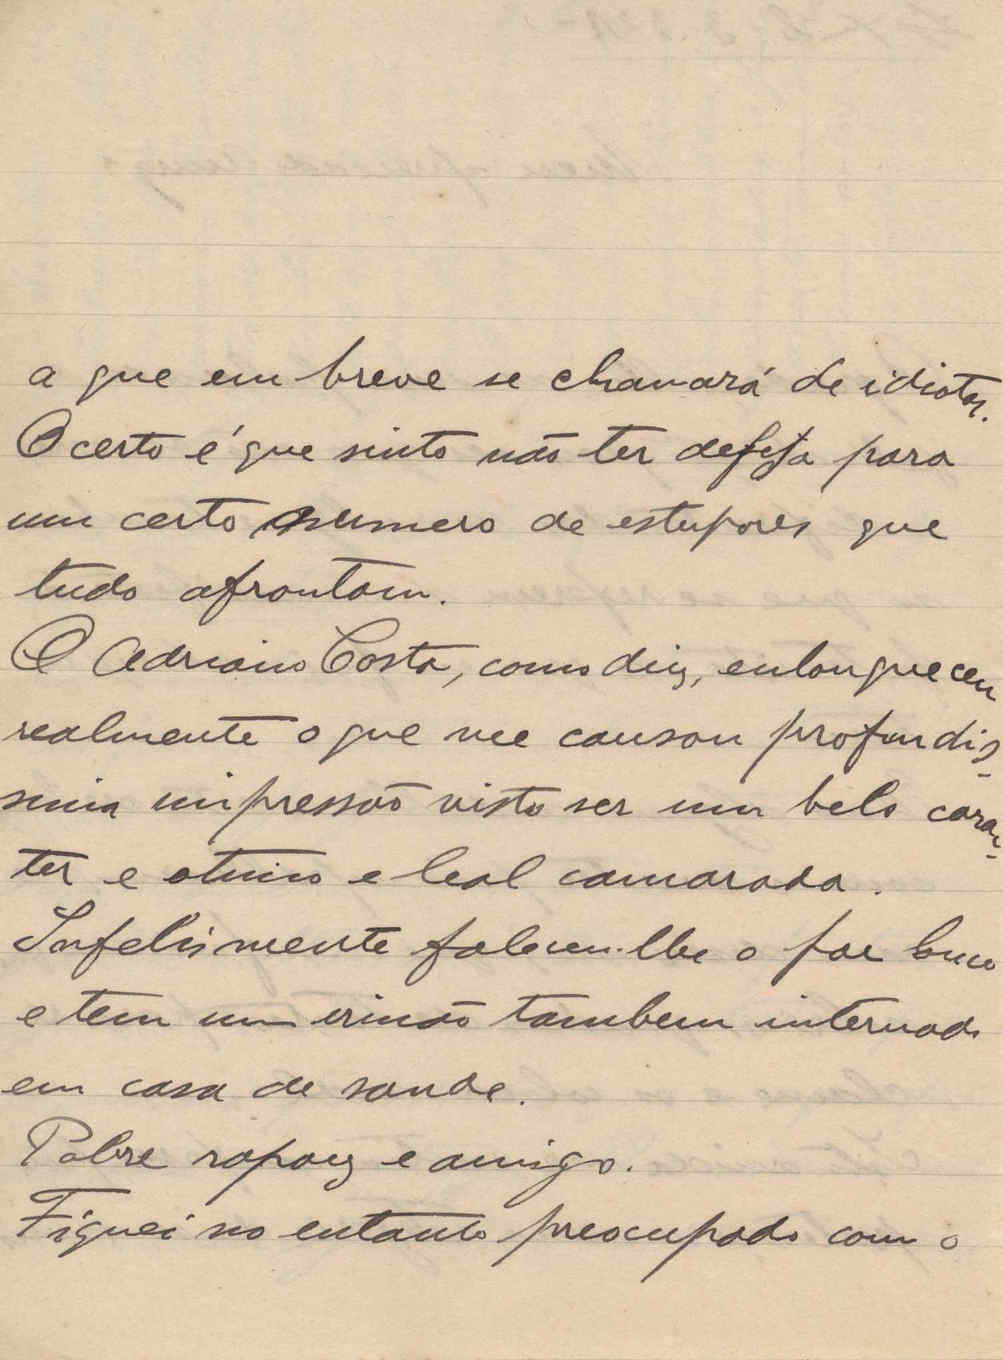 a que em breve se chamará de idiotas.
O certo é que sinto não ter defesa para
um certo numero de estupores que
tudo afrontam.
O Adriano Costa, como diz, enlouqueceu
realmente o que me causou profundis-
sima impressão visto ser um belo carac-
ter e otimo e leal camarada.
Infelismente faleceu-lhe o pae louco
e tem um irmão tambem internado
em casa de saude.
Pobre rapaz e amigo.
Fiquei no entanto preocupado com o